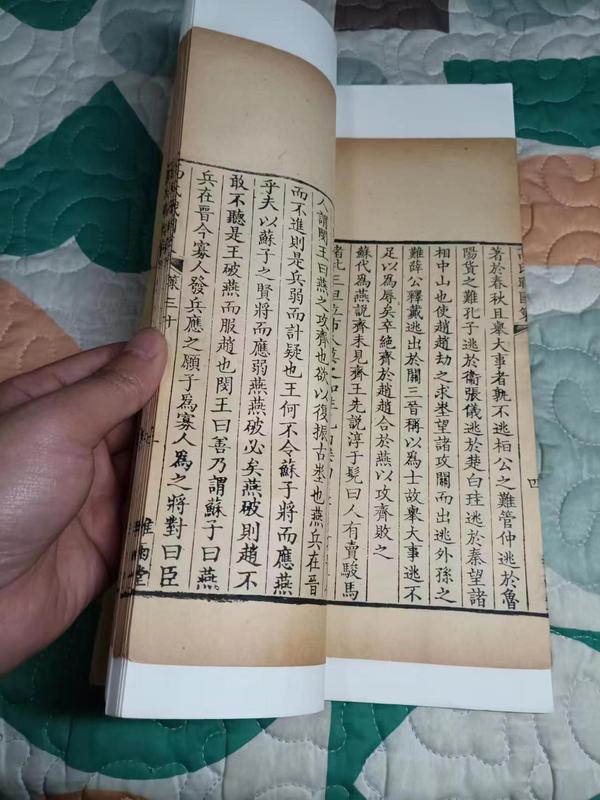 氏戰國策 四
著於春秋且舉大事者孰不逃桓公之難管仲逃於魯
陽貨之難孔子逃於衞張儀逃於楚白珪逃於秦望諸
相中山也使趙趙劫之求埊望諸攻關而出逃外孫之
難薛公釋戴逃出於關三晉稱以為士故舉大事逃不
足以為辱矣卒絕齊於趙趙合於燕以攻齊敗之
蘇代為燕說齊未見齊王先說淳于髡曰人有賣駿馬
人謂閔王曰燕之攻齊也欲以復振古埊也燕兵在晉
而不進則是兵弱而計疑也王何不令蘇子將而應燕
乎夫以蘇子之賢將而應弱燕燕破必矣燕破則趙不
敢不聽是王破燕而服趙也閔王曰善乃謂蘇子曰燕
兵在晉今寡人發兵應之願子為寡人為之將對曰臣
三十 雅雨堂